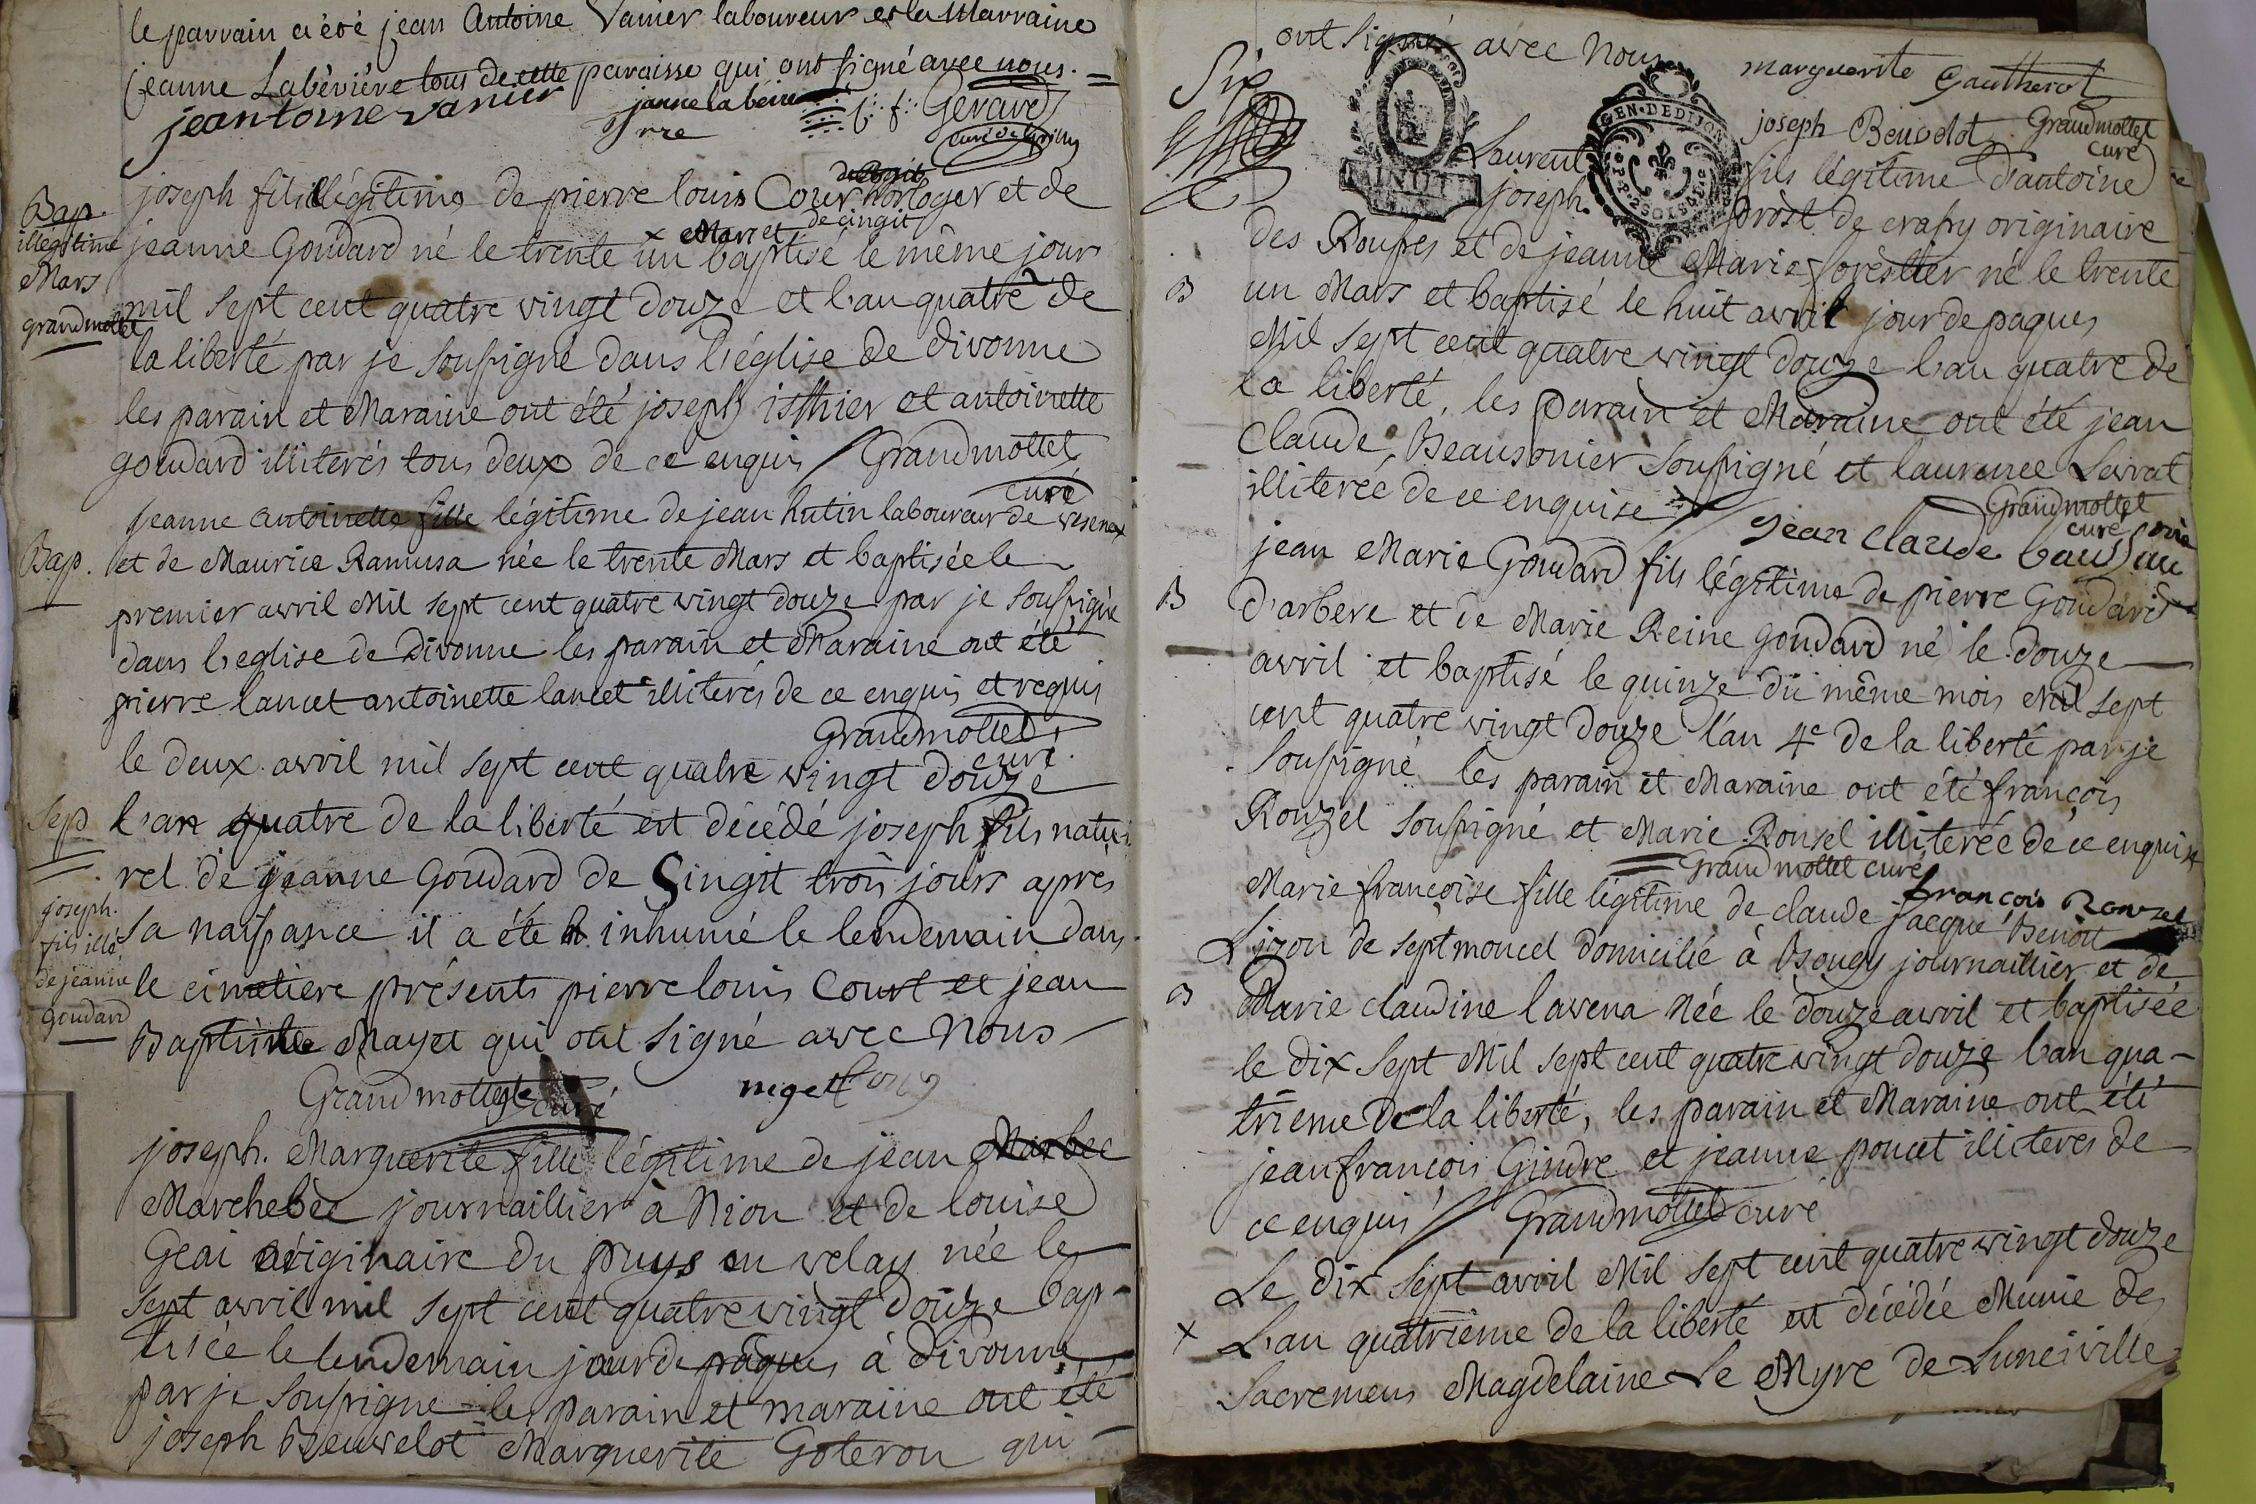 le parrain a été jean Antoine Vanier laboureur et la Marraine
jeanne Labévière tous de cette paroisse qui ont signé avec nous.
jeantoine vanier
janne la beire
rre
f: f: Gerard
curé de
joseph fils illégitime de pierre louis Cour horloger et de
de cingit
jeanne Goudard né le trente un × Mars et baptisé le même jour
Bap.
illégitime
Mars
grandmottet
mil sept cent quatre vingt douze et l'an quatre de
la liberté par je soussigné dans l'église de divonne
les parain et Maraine ont été joseph isthier et antoinette
goudard illiterés tous deux de ce enquis Grandmottet
curé
jeanne antoinette fille légitime de jean hutin laboureur de vesenex
Bap.
et de Maurice Ramusa née le trente Mars et baptisée le
premier avril Mil sept cent quatre vingt douze par je soussigné
dans l'eglise de Divonne les parain et Maraine ont été
pierre lancet antoinette lancet illiterés de ce enquis et requis
Grandmottet
curé.
le deux avril mil sept cent quatre vingt douze
Sep
l'an quatre de la liberté est décédé joseph fils natu
rel de jeanne Goudard de Singit trois jours après
joseph.
fils illé.
de jeanne
Goudard
sa naissance il a été inhumé le lendemain dans
le cimetiere présents pierre louis Court et jean
Baptiste Mayet qui ont signé avec Nous
Grandmottet curé
joseph. Marguerite fille légitime de jean Marbec
Marchebée journaillier à Nion et de louise
Geai originaire du puys en velay née le
sept avril mil sept cent quatre vingt douze bap-
tisée le lendemain jour de pâques à divonne
par je soussigné les parain et maraine ont été
joseph Beuvelot Marguerite Goteron qui
ont signé avec Nous
marguerite Gautherot
GEN. DE DIJON
MINUTE
joseph Beuvelot Grandmottet
curé
Laurent
joseph.
fils légitime d'antoine
prost de crassy originaire
des Rousses et de jeanne Marie forestier né le trente
B
un Mars et baptisé le huit avril jour de paques
Mil sept cent quatre vingt douze l'an quatre de
la liberté, les parain et Maraine ont été jean
Claude Beausonier soussigné et laurence Lavrat
illiterée de ce enquise
Grandmottet
curé
jean claude
jean Marie Goudard fils légitime de pierre Goudard
B
d'arbere et de Marie Reine goudard né le douze
avril et baptisé le quinze du même mois Mil sept
cent quatre vingt douze l'an 4e de la liberté par je
soussigné les parain et Maraine ont été françois
Rouzel soussigné et Marie Ronsel illiterée de ce enquise
Grandmottet curé
francois Rouzet
Marie françoise fille légitime de claude jacque Benoit
Lizon de septmoncel domicilié à Bougy journaillier et de
B
Marie claudine lavena Née le douze avril et baptisée
le dix sept Mil sept cent quatre vingt douze l'an qua-
trieme de la liberté, les parain et Maraine ont été
jean françois Gindre et jeanne poncet illiteres de
ce enquis Grandmottet curé
Le dix sept avril Mil sept cent quatre vingt douze
×
L'an quatrieme de la liberté est décédée Munie des
Sacremens Magdelaine Le Myre de Luneiville